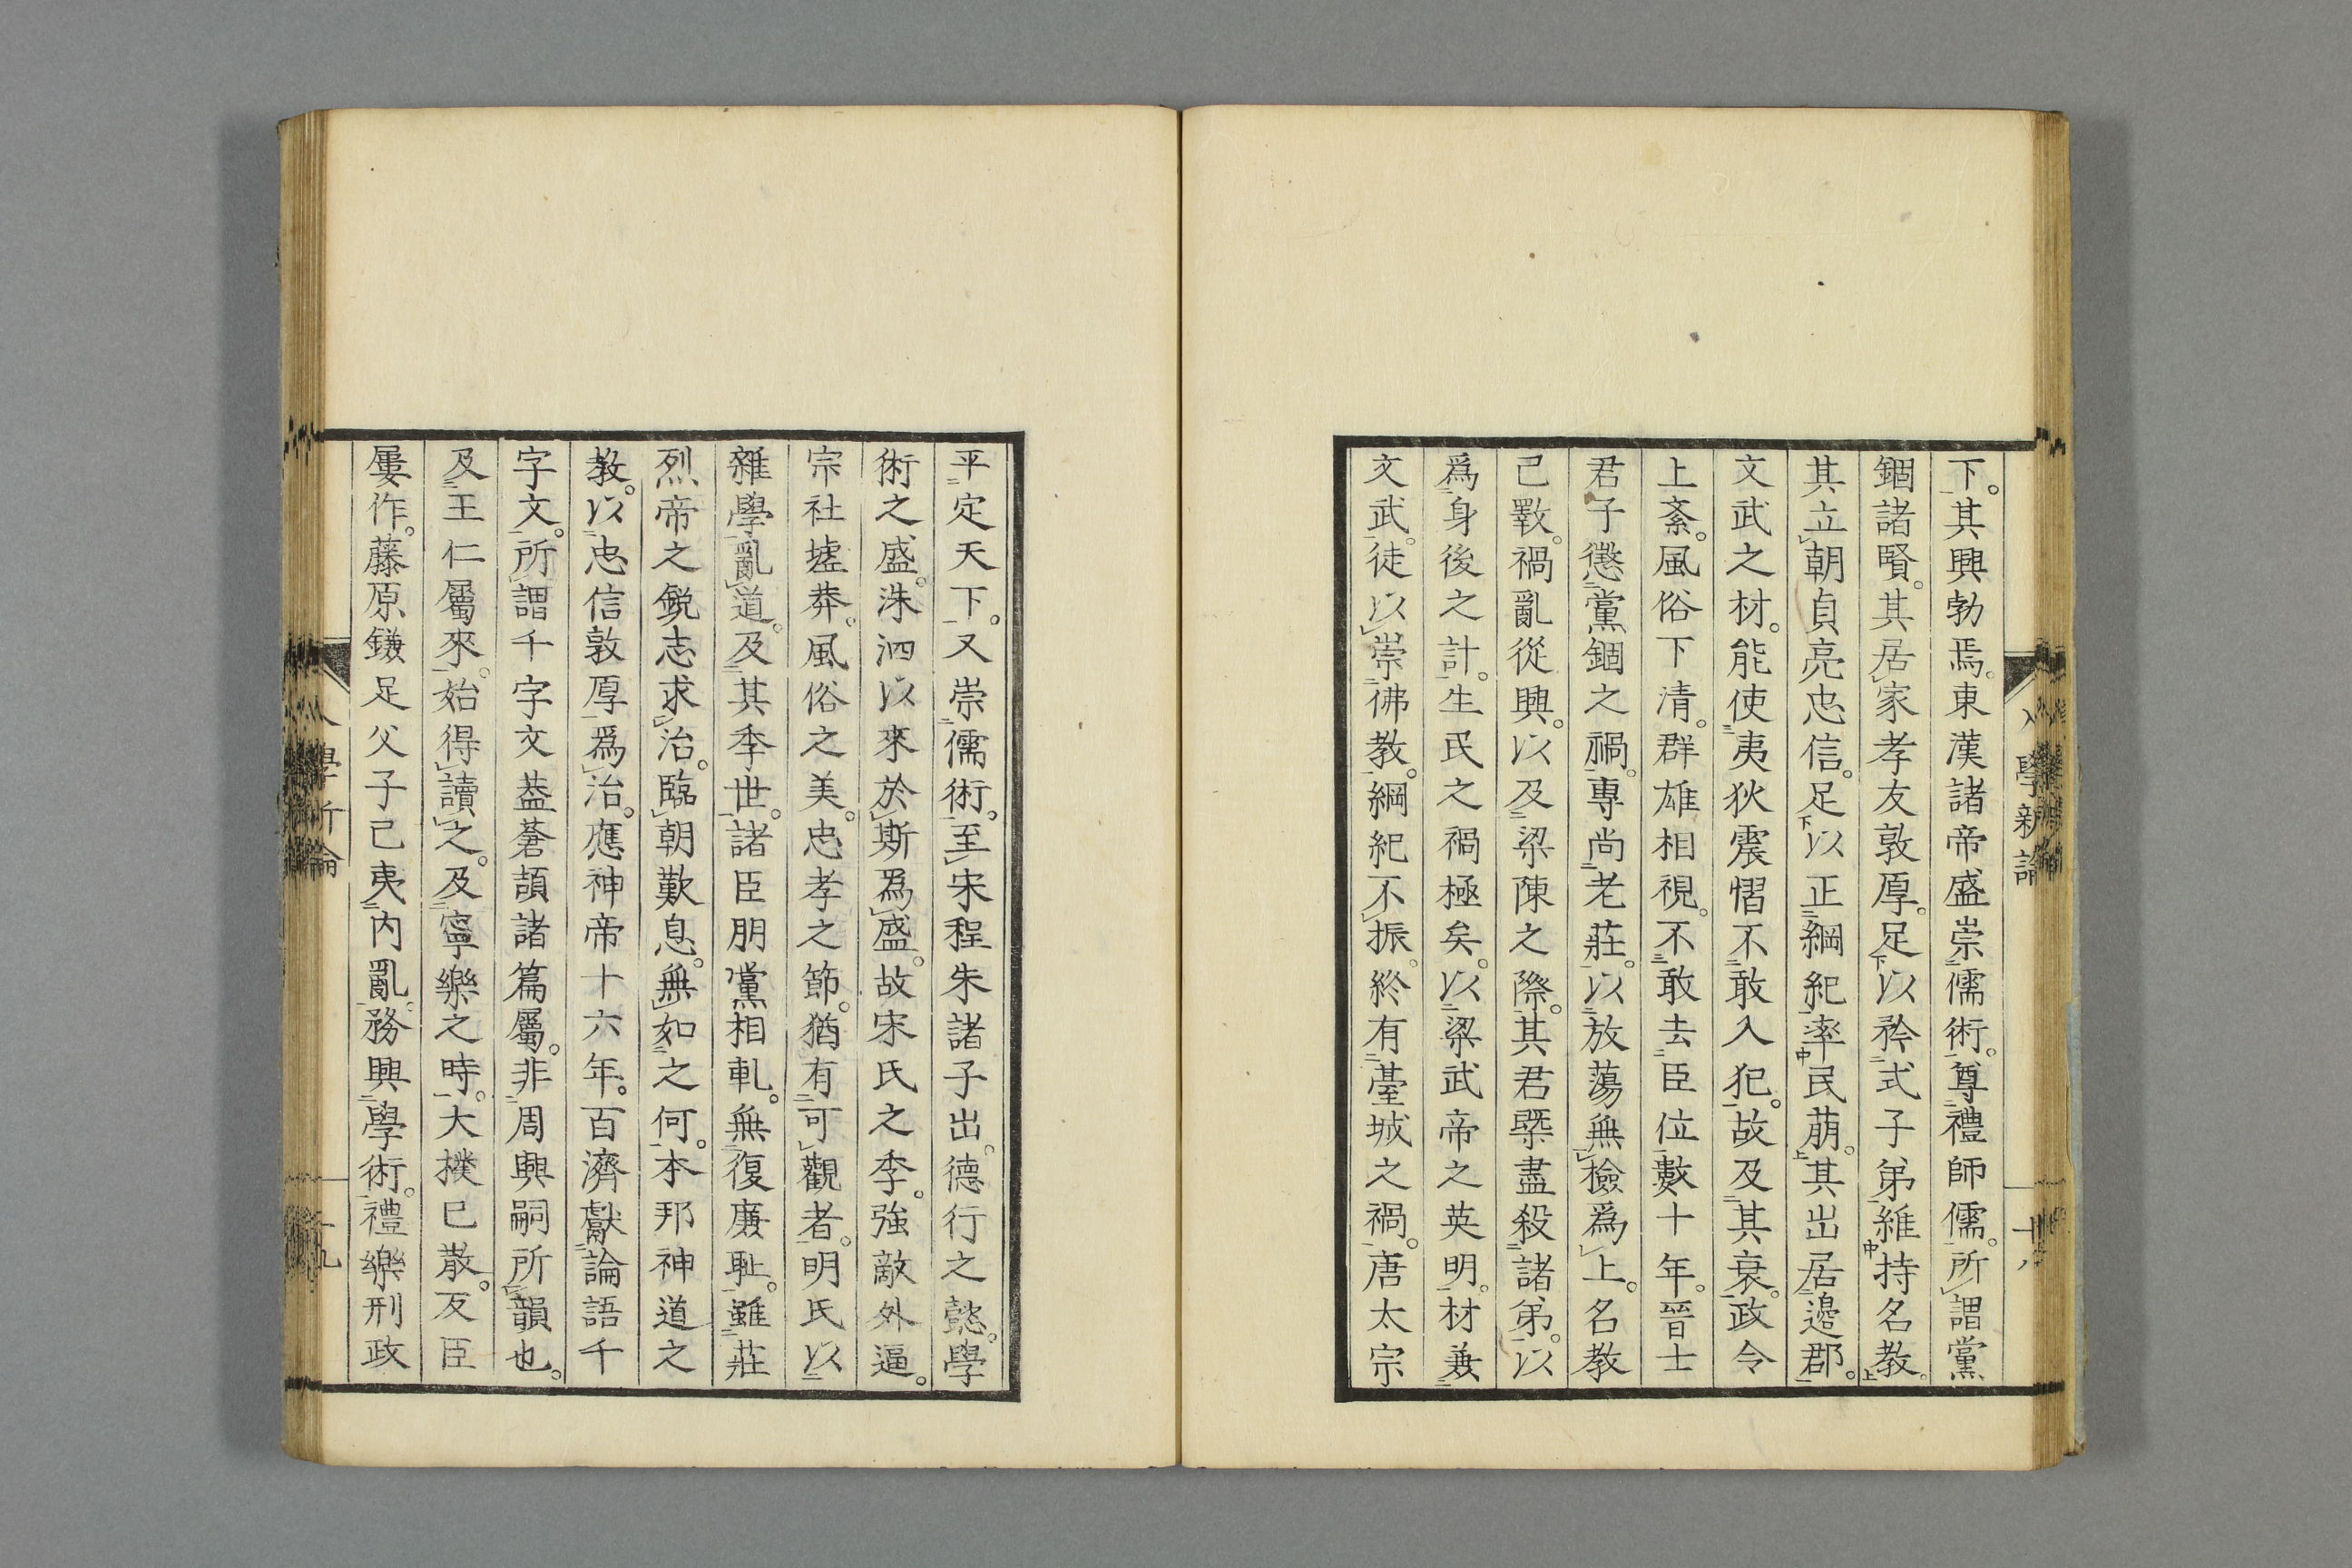 下。其興勃焉。東漢諸帝盛崇儒術。尊禮師儒。所謂黨
錮諸賢。其居家孝友敦厚。足以矜式子弟維持名教。
其立朝貞亮忠信。足以正綱紀率民萠。其出居邊郡。
文武之材。能使夷狄震慴不敢入犯。故及其衰。政令
上紊。風俗下清。群雄相視。不敢去臣位數十年。晉士
君子懲黨錮之禍。專尚老莊。以放蕩無檢爲上。名教
已斁。禍亂從興。以及梁陳之際。其君槩盡殺諸弟。以
爲身後之計。生民之禍極矣。以梁武帝之英明。材兼
文武。徒以崇佛教。綱紀不振。終有臺城之禍。唐太宗
學新論
十八
平定天下。又崇儒術。至宋程朱諸子出。德行之懿。學
術之盛。洙泗以來於斯爲盛。故宋氏之季。強敵外逼。
宗社墟莽。風俗之美。忠孝之節。猶有可觀者。明氏以
雜學亂道。及其季世。諸臣朋黨相軋。無復廉恥。雖莊
烈帝之鋭志求治。臨朝歎息。無如之何。本邦神道之
教。以忠信敦厚爲治。應神帝十六年。百濟獻論語千
字文。所謂千字文葢蒼頡諸篇屬。非周興嗣所韻也。
及王仁屬來。始得讀之。及寧樂之時。大樸已散。友臣
屢作。藤原鎌足父子已夷内亂。務興學術。禮樂刑政